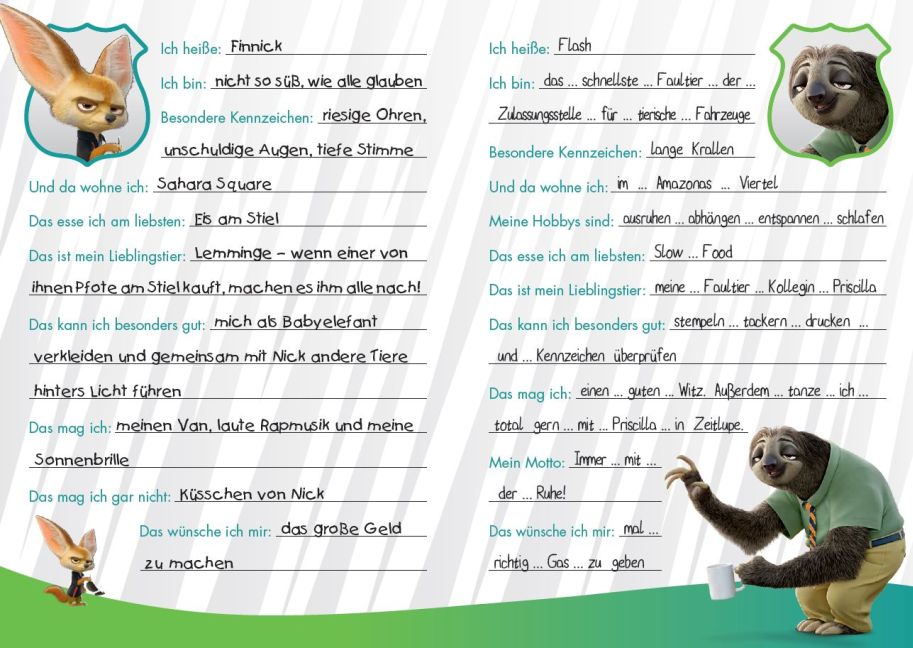 Ich heiße: Finnick
Ich bin: nicht so süß, wie alle glauben
Besondere Kennzeichen: riesige Ohren,
unschuldige Augen, tiefe Stimme
Und da wohne ich: Sahara Square
Das esse ich am liebsten: Eis am Stiel
Das ist mein Lieblingstier: Lemminge – wenn einer von
ihnen Pfote am Stiel kauft, machen es ihm alle nach!
Das kann ich besonders gut: mich als Babyelefant
verkleiden und gemeinsam mit Nick andere Tiere
hinters Licht führen
Das mag ich: meinen Van, laute Rapmusik und meine
Sonnenbrille
Das mag ich gar nicht: Küsschen von Nick
Das wünsche ich mir: das große Geld
zu machen
Ich heiße: Flash
Ich bin: das ... schnellste ... Faultier ... der ...
Zulassungsstelle ... für ... tierische ... Fahrzeuge
Besondere Kennzeichen: lange Krallen
Und da wohne ich: im ... Amazonas ... Viertel
Meine Hobbys sind: ausruhen ... abhängen ... entspannen ... schlafen
Das esse ich am liebsten: Slow ... Food
Das ist mein Lieblingstier: meine ... Faultier ... Kollegin ... Priscilla
Das kann ich besonders gut: stempeln ... tackern ... drucken ...
und ... Kennzeichen überprüfen
Das mag ich: einen ... guten ... Witz. Außerdem ... tanze ... ich ...
total gern ... mit ... Priscilla ... in Zeitlupe.
Mein Motto: Immer ... mit ...
der ... Ruhe!
Das wünsche ich mir: mal ...
richtig ... Gas ... zu geben